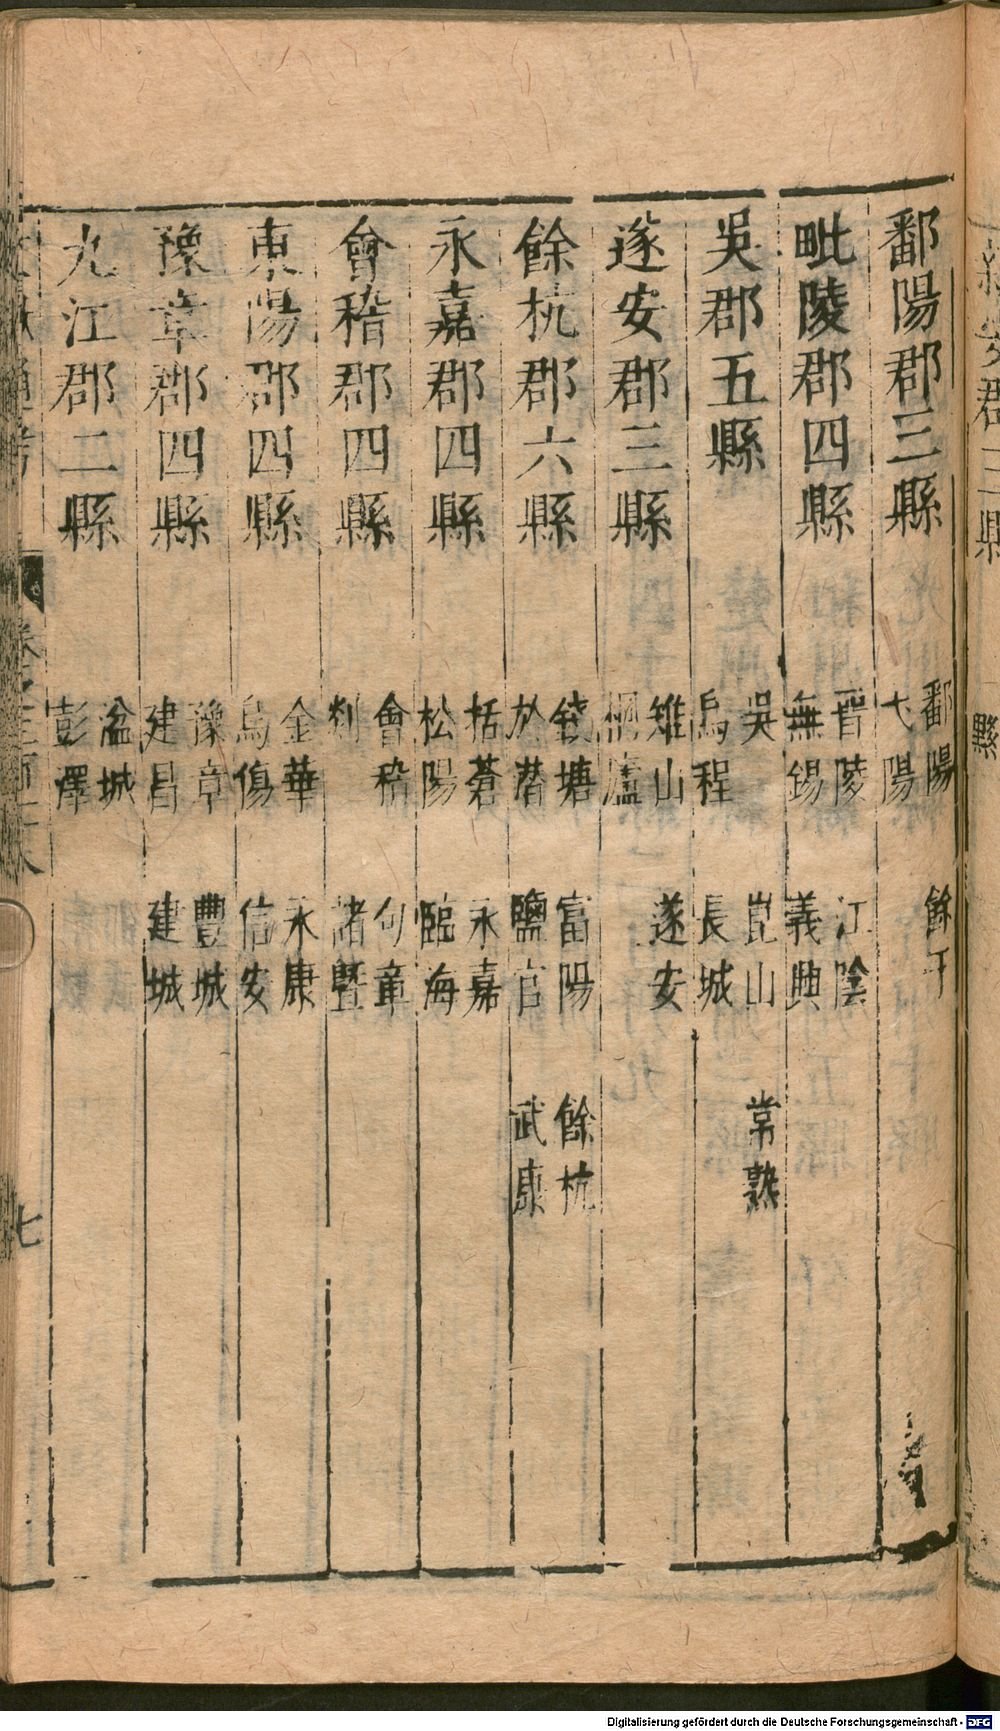 鄱陽郡三縣
鄱陽 餘干
弋陽
毗陵郡四縣
晉陵 江陰
無錫 義興
吳郡五縣
吳 崑山 常熟
烏程 長城
遂安郡三縣
雉山 遂安
桐廬
餘杭郡六縣
錢塘 富陽 餘杭
於潛 鹽官 武康
永嘉郡四縣
括蒼 永嘉
松陽 臨海
會稽郡四縣
會稽 句章
剡 諸暨
東陽郡四縣
金華 永康
烏傷 信安
豫章郡四縣
豫章 豐城
建昌 建城
九江郡二縣
湓城
彭澤
七
黟
Digitalisierung gefördert durch die Deutsche Forschungsgemeinschaft - DFG